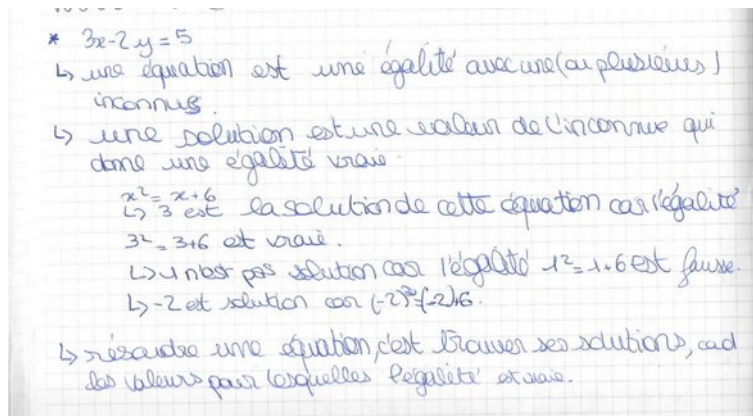 * 3x-2y=5
↳ une équation est une égalité avec une (ou plusieurs)
inconnus.
↳ une solution est une valeur de l'inconnue qui
done une égalité vraie.
x²=x+6
↳ 3 est la solution de cette équation car l'égalité
3²=3+6 est vraie.
↳ 1 n'est pas solution car l'égalité 1²=1+6 est fausse.
↳ -2 est solution car (-2)²=(-2)+6.
↳ résoudre une équation, c'est trouver ses solutions, cad
les valeurs pour lesquelles l'égalité est vraie.